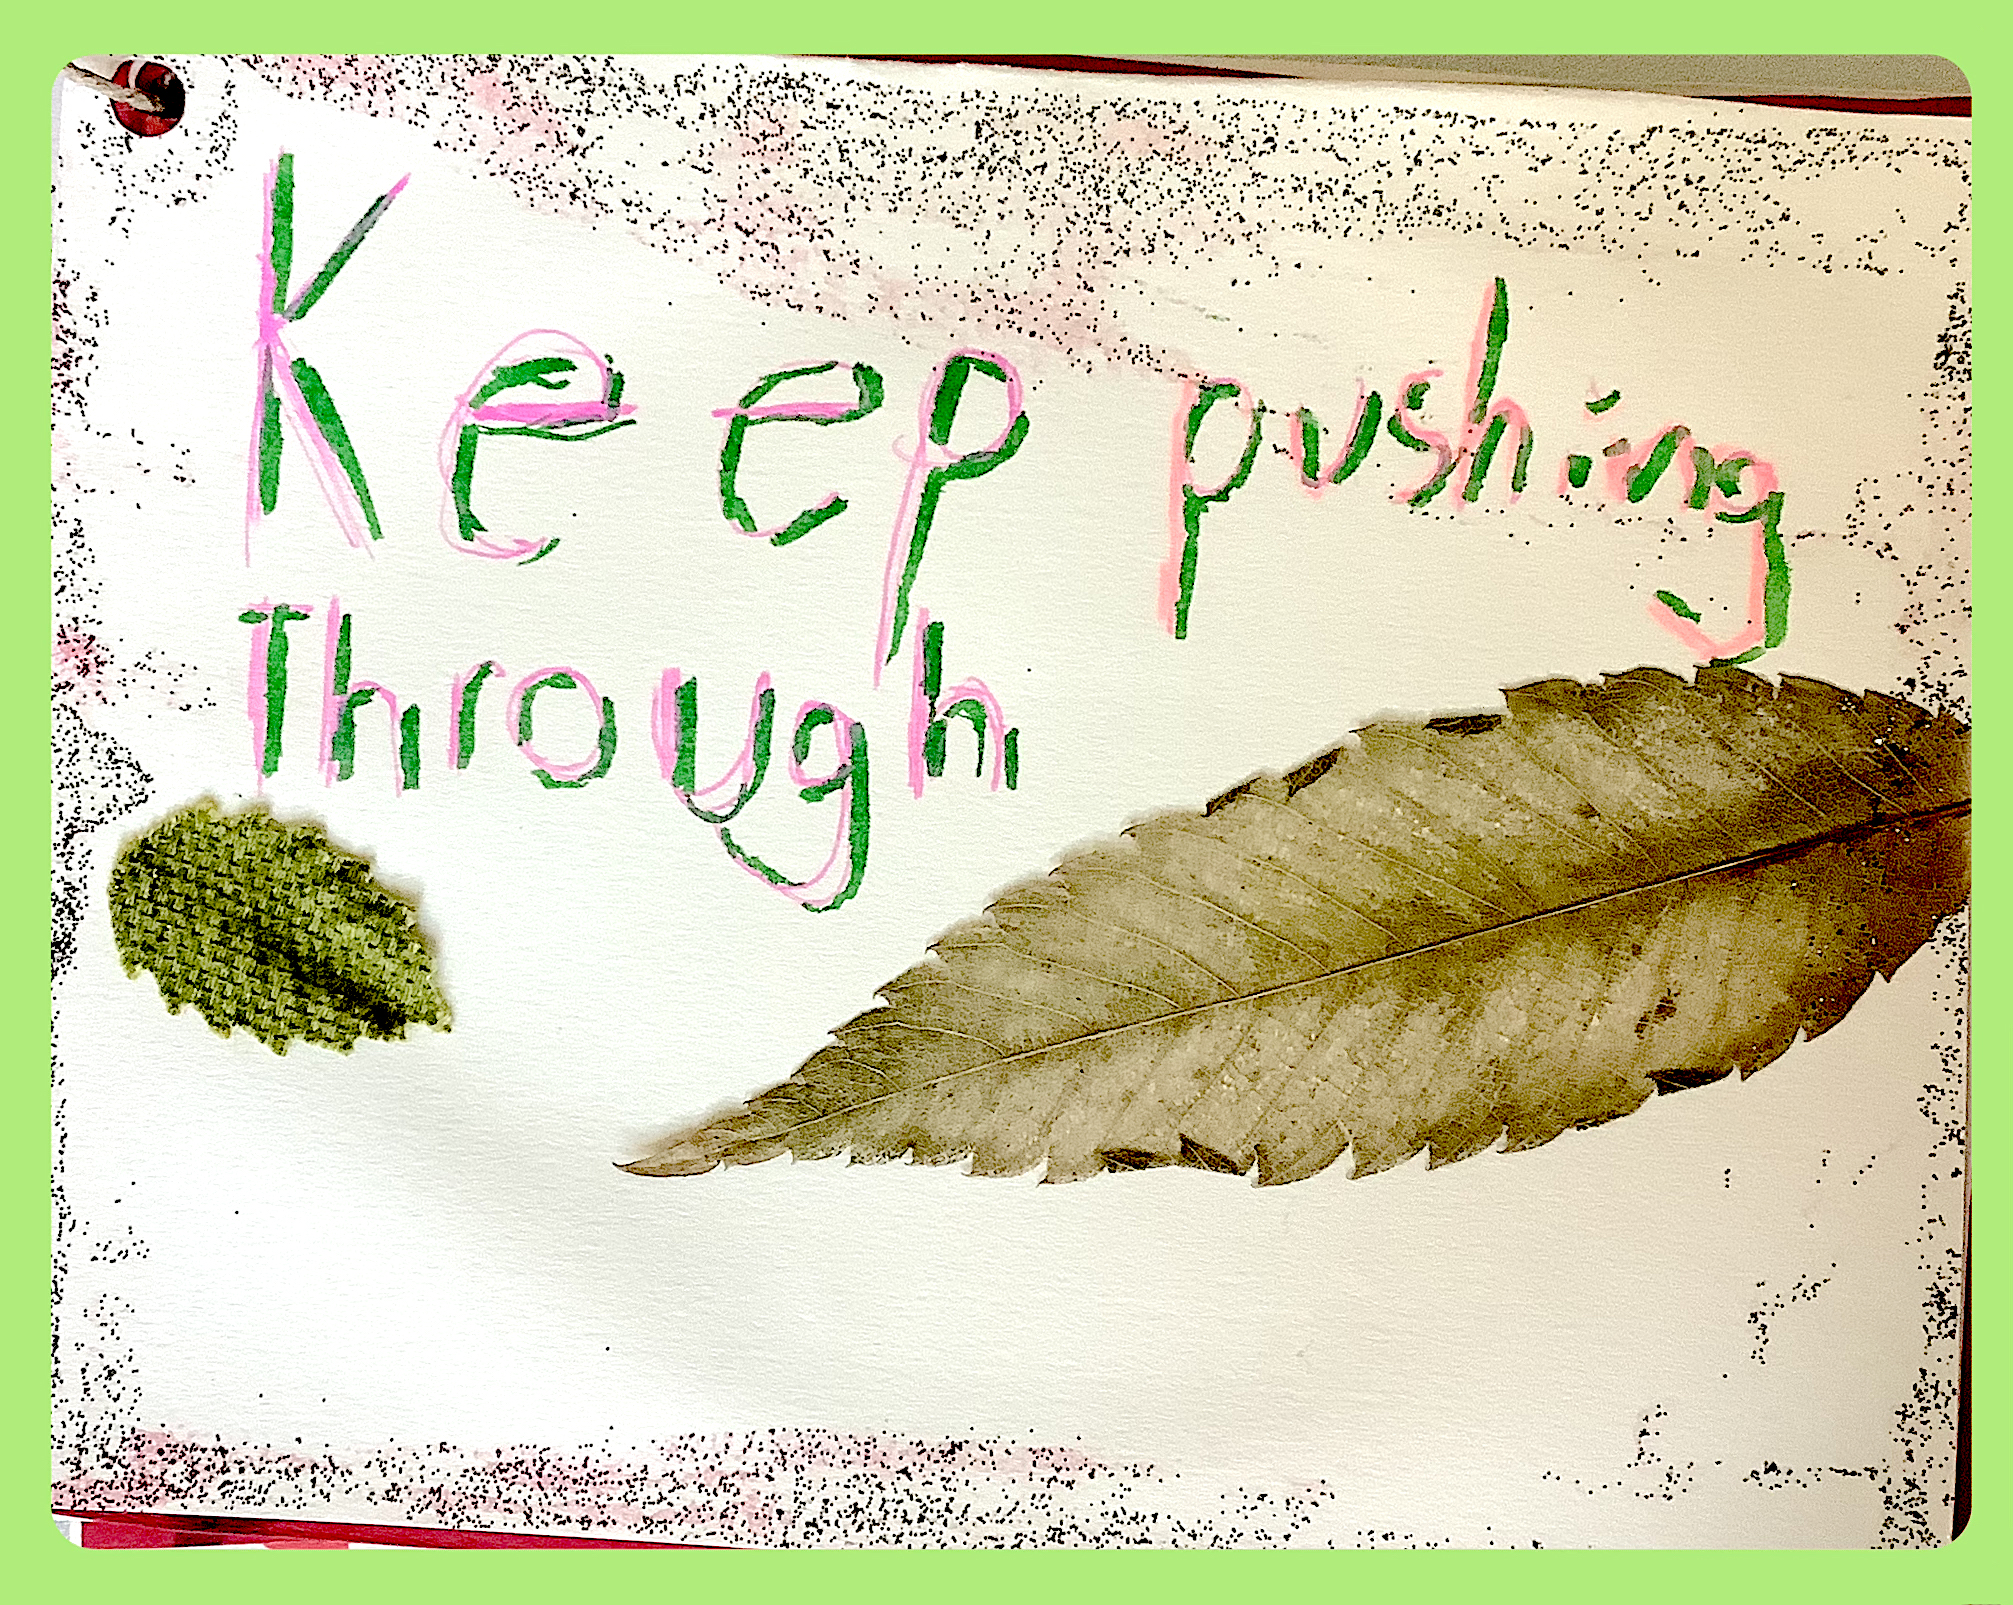 Keep pushing
Through